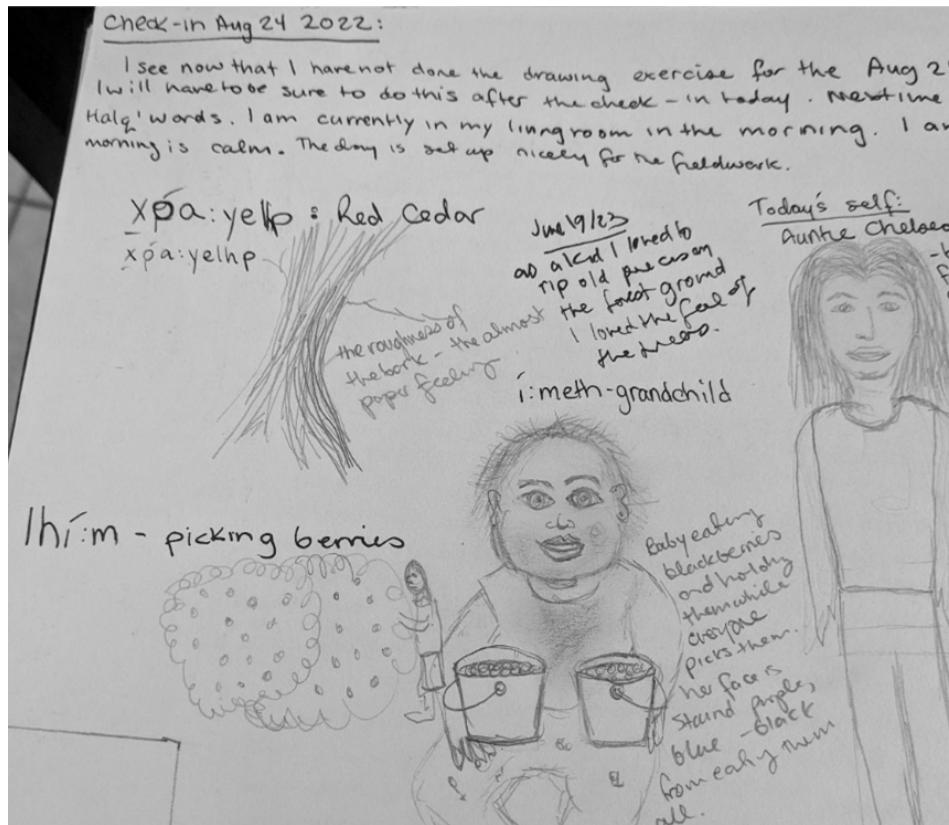 Check-in Aug 24 2022:
I see now that I have not done the drawing exercise for the Aug 2
I will have to be sure to do this after the check-in today. Next time
Halq' words. I am currently in my livingroom in the morning. I am
morning is calm. The day is set up nicely for the fieldwork.
x̲pá:yelhp : Red Cedar
x̲pá:yelhp
the roughness of
the bark - the almost
paper feeling
June 19/23
as a kid I loved to
rip old
the forest ground
I loved the feel of
the trees.
Today's self:
Auntie Chelsea
í:meth-grandchild
lhí:m - picking berries
Baby eating
blackberries
and holding
them while
everyone
picks them.
her face is
stained purple,
blue-black
from eating them
all.